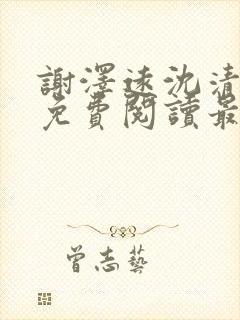 謝澤遠沈清
免費閱讀最
曾志藝